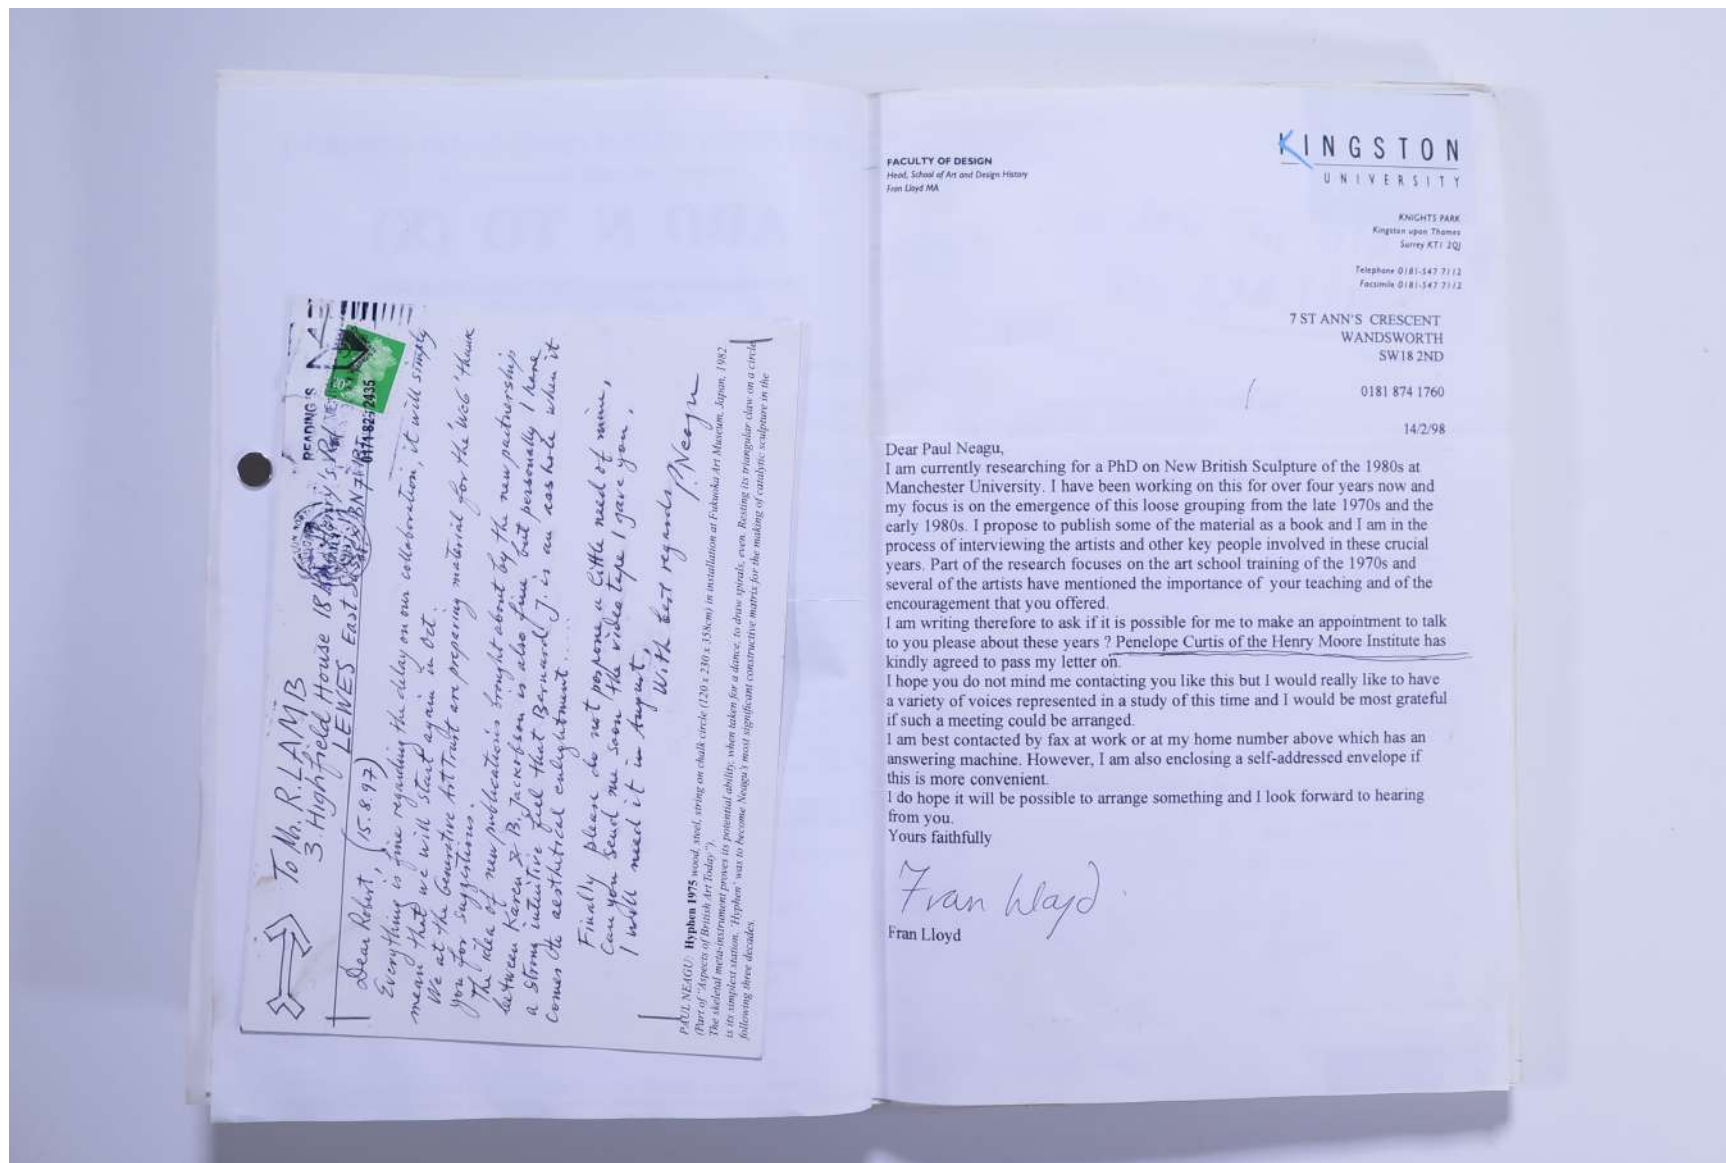 To Mr. R. LAMB
3. Highfield House 18
LEWES East Sussex BN7
READING'S
0171-823 2435
Dear Robert, (15.8.97)
Everything is fine regarding the delay on our collaboration, it will simply
mean that we will start again in Oct.
We at the Generative Art Trust are preparing material for the Web, thank
you for suggestions.
The idea of new publications brought about by the new partnership
between Karen & B. Jacobson is also fine but personally I have
a strong intuitive feel that Bernard J. is an asshole when it
comes to aesthetical enlightment.....
Finally please do not pospone a little need of mine,
Can you send me soon the video tape I gave you,
I will need it in August,
With best regards P. Neagu
PAUL NEAGU: Hyphen 1975 wood, steel, string on chalk circle (120 x 230 x 358cm) in installation at Fukuoka Art Museum, Japan, 1982
(Part of "Aspects of British Art Today").
The skeletal meta-instrument proves its potential ability, when taken for a dance, to draw spirals, even. Resting its triangular claw on a circle
is its simplest station. 'Hyphen' was to become Neagu's most significant constructive matrix for the making of catalytic sculpture in the
following three decades.
FACULTY OF DESIGN
Head, School of Art and Design History
Fran Lloyd MA
KINGSTON
UNIVERSITY
KNIGHTS PARK
Kingston upon Thames
Surrey KT1 2QJ
Telephone 0181-547 7112
Facsimile 0181-547 7112
7 ST ANN'S CRESCENT
WANDSWORTH
SW18 2ND
0181 874 1760
14/2/98
Dear Paul Neagu,
I am currently researching for a PhD on New British Sculpture of the 1980s at
Manchester University. I have been working on this for over four years now and
my focus is on the emergence of this loose grouping from the late 1970s and the
early 1980s. I propose to publish some of the material as a book and I am in the
process of interviewing the artists and other key people involved in these crucial
years. Part of the research focuses on the art school training of the 1970s and
several of the artists have mentioned the importance of your teaching and of the
encouragement that you offered.
I am writing therefore to ask if it is possible for me to make an appointment to talk
to you please about these years ? Penelope Curtis of the Henry Moore Institute has
kindly agreed to pass my letter on.
I hope you do not mind me contacting you like this but I would really like to have
a variety of voices represented in a study of this time and I would be most grateful
if such a meeting could be arranged.
I am best contacted by fax at work or at my home number above which has an
answering machine. However, I am also enclosing a self-addressed envelope if
this is more convenient.
I do hope it will be possible to arrange something and I look forward to hearing
from you.
Yours faithfully
Fran Lloyd
Fran Lloyd